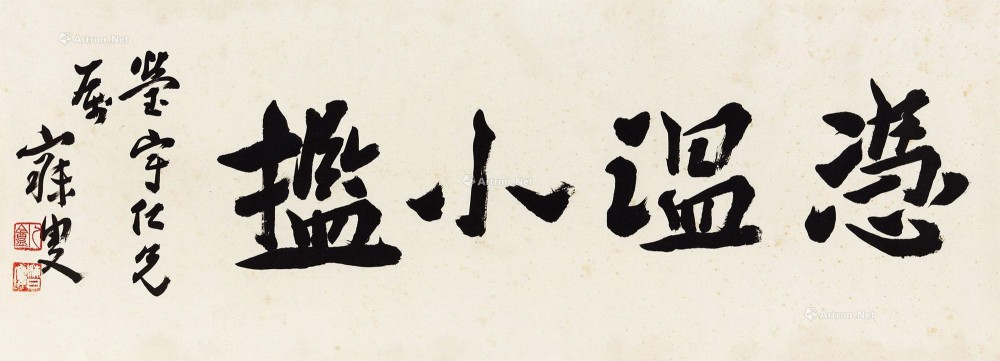 憑温小檻
瑩宇仁兄
屬
寐叟
Artron.Net
Artron.Net
Artron.Net